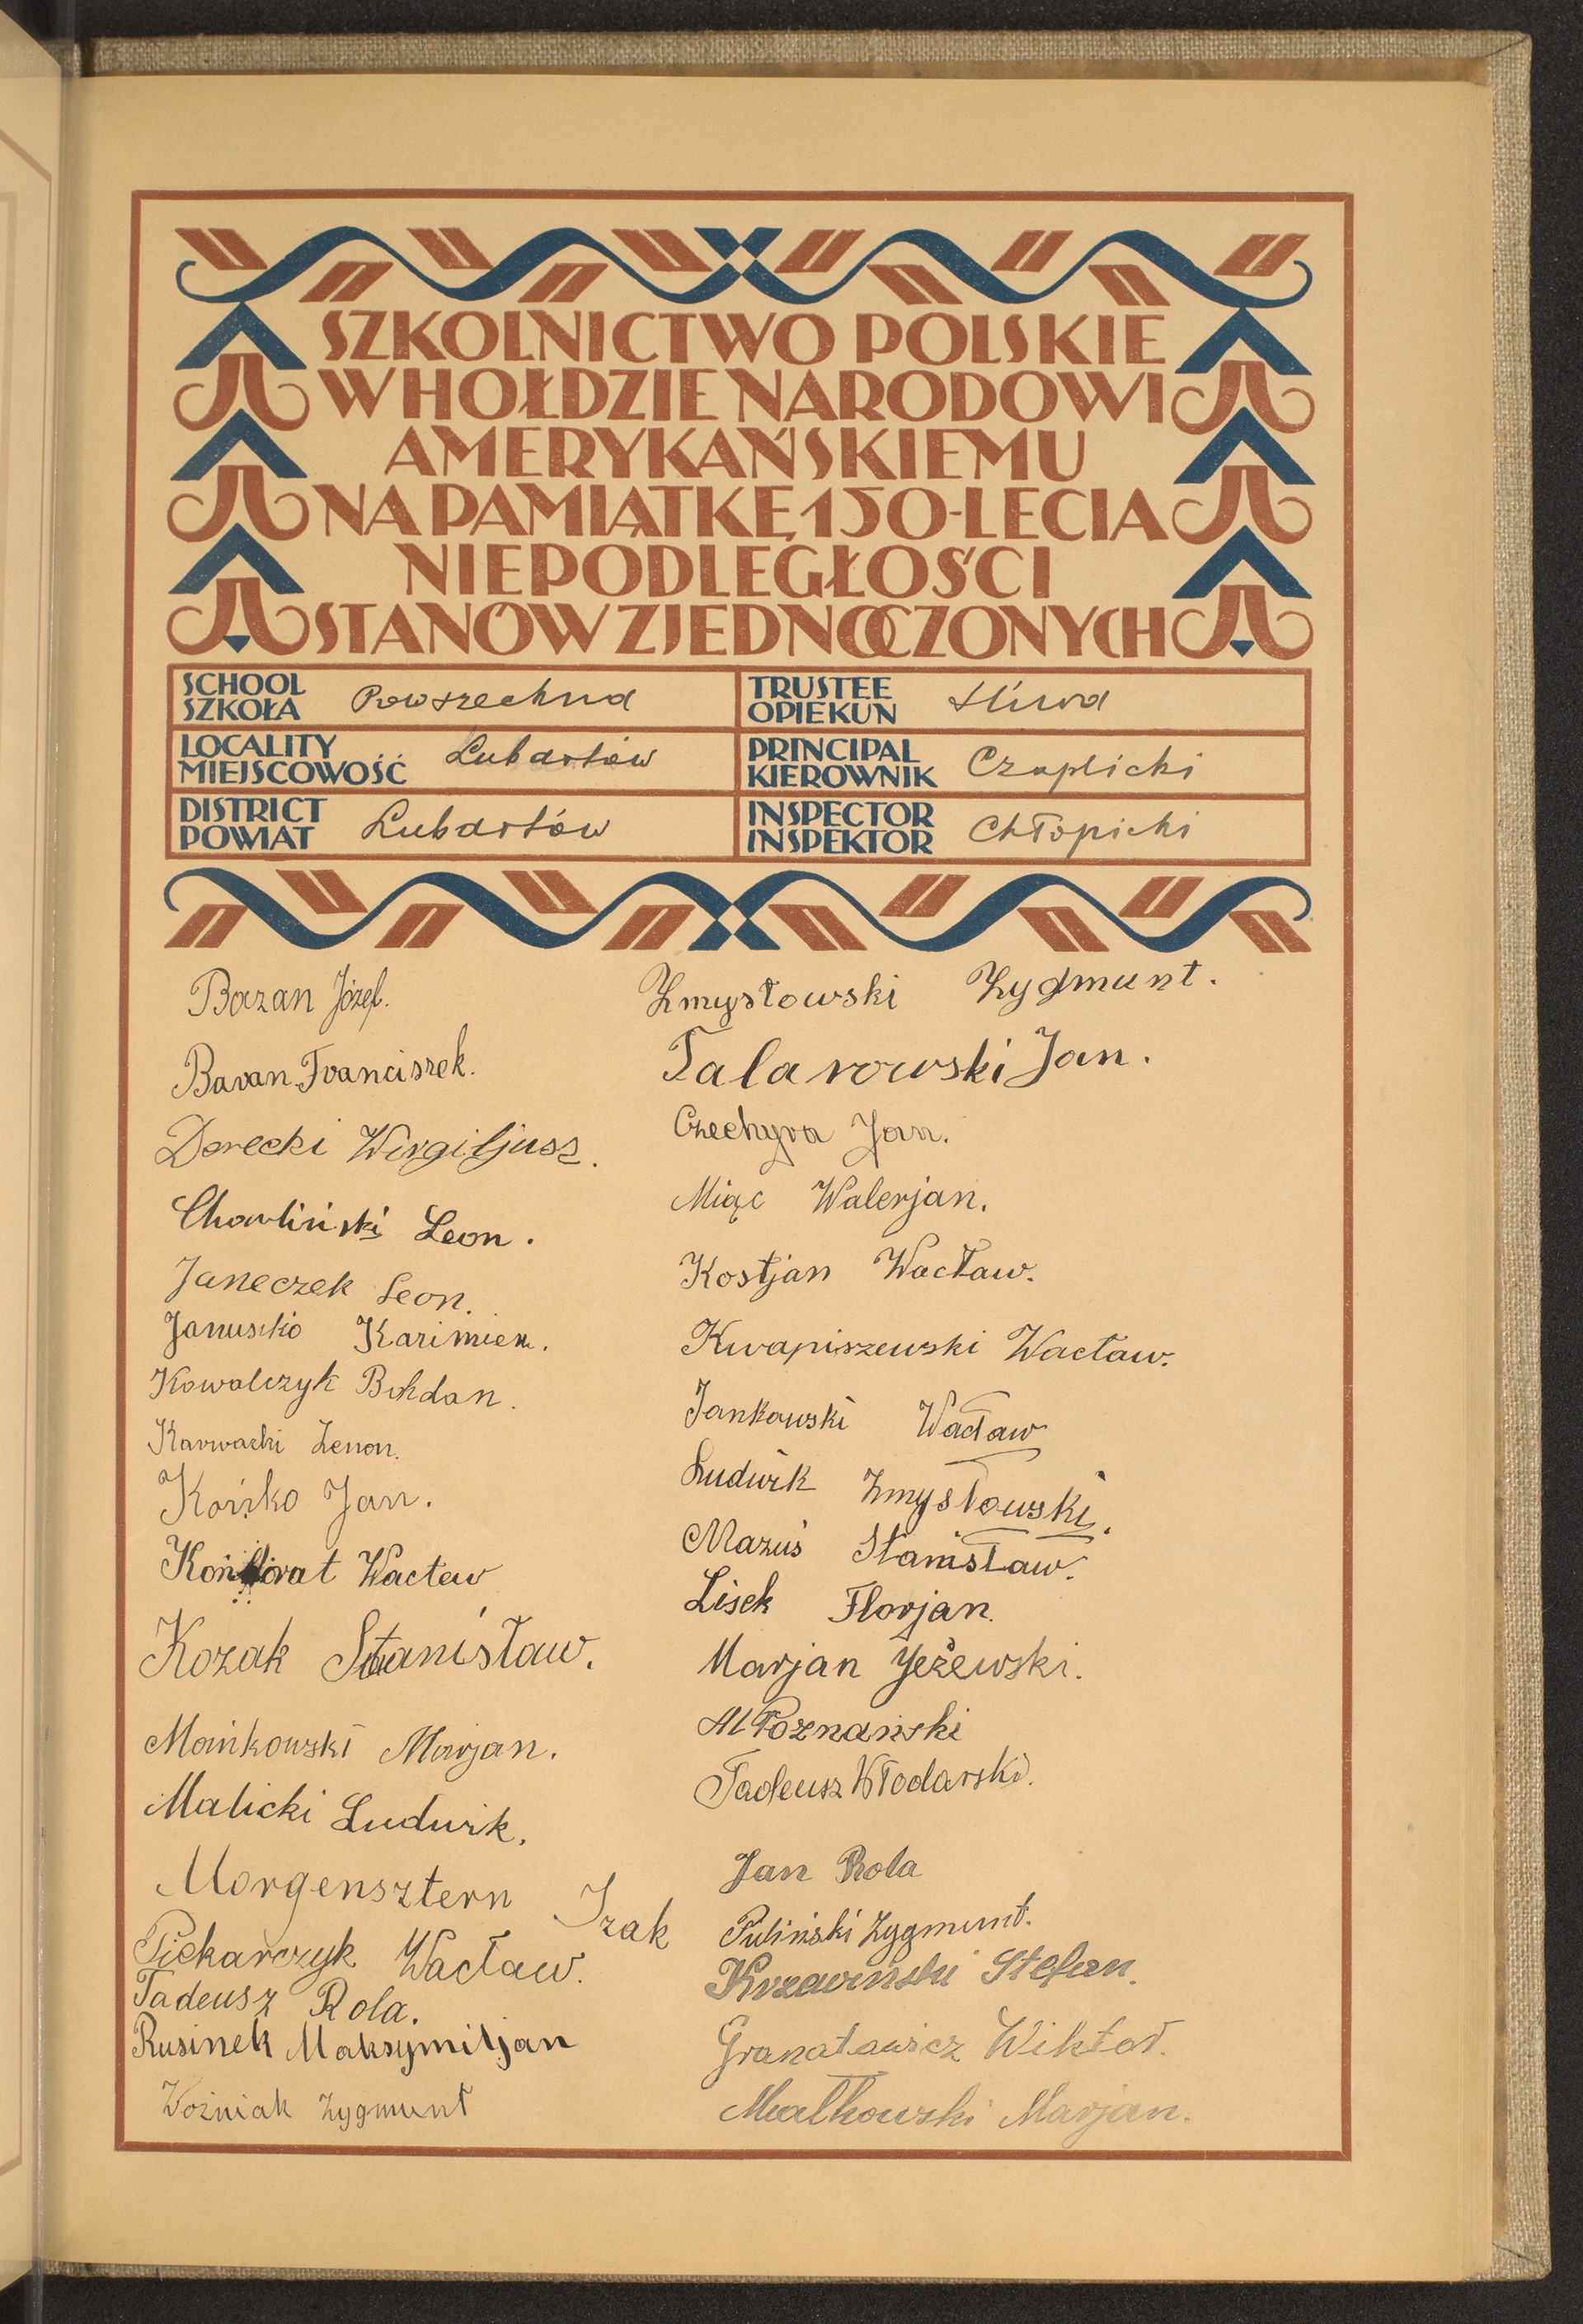 SZKOLNICTWO POLSKIE
W HOŁDZIE NARODOWI
AMERYKAŃSKIEMU
NA PAMIĄTKĘ 150-LECIA
NIEPODLEGŁOŚCI
STANÓW ZJEDNOCZONYCH
SCHOOL
SZKOŁA Powszechna
TRUSTEE
OPIEKUN Śliwa
LOCALITY
MIEJSCOWOŚĆ Lubartów
PRINCIPAL
KIEROWNIK Czaplicki
DISTRICT
POWIAT Lubartów
INSPECTOR
INSPEKTOR Chłopicki
Bazan Józef.
Baran Franciszek.
Derecki Wirgiljusz.
Leon.
Janeczek Leon.
Januszko Kazimierz.
Kowalczyk Bohdan.
Karwacki Zenon.
Końko Jan.
Wacław
Kozak Stanisław.
Mańkowski Marjan.
Malicki Ludwik.
Morgensztern Izak
Piekarczyk Wacław.
Tadeusz Rola.
Rusinek Maksymiljan
Woźniak Zygmunt
Zmysłowski Zygmunt.
Talarowski Jan.
Czechyra Jan.
Miąc Walerjan.
Kostjan Wacław.
Kwapiszewski Wacław.
Jankowski Wacław
Ludwik Zmysłowski.
Mazuś Stanisław.
Lisek Florjan.
Marjan Jeżewski.
M Poznański
Tadeusz Włodarski.
Jan Rola
Puliński Zygmunt.
Stefan.
Granatowicz Wiktor.
Małkowski Marjan.